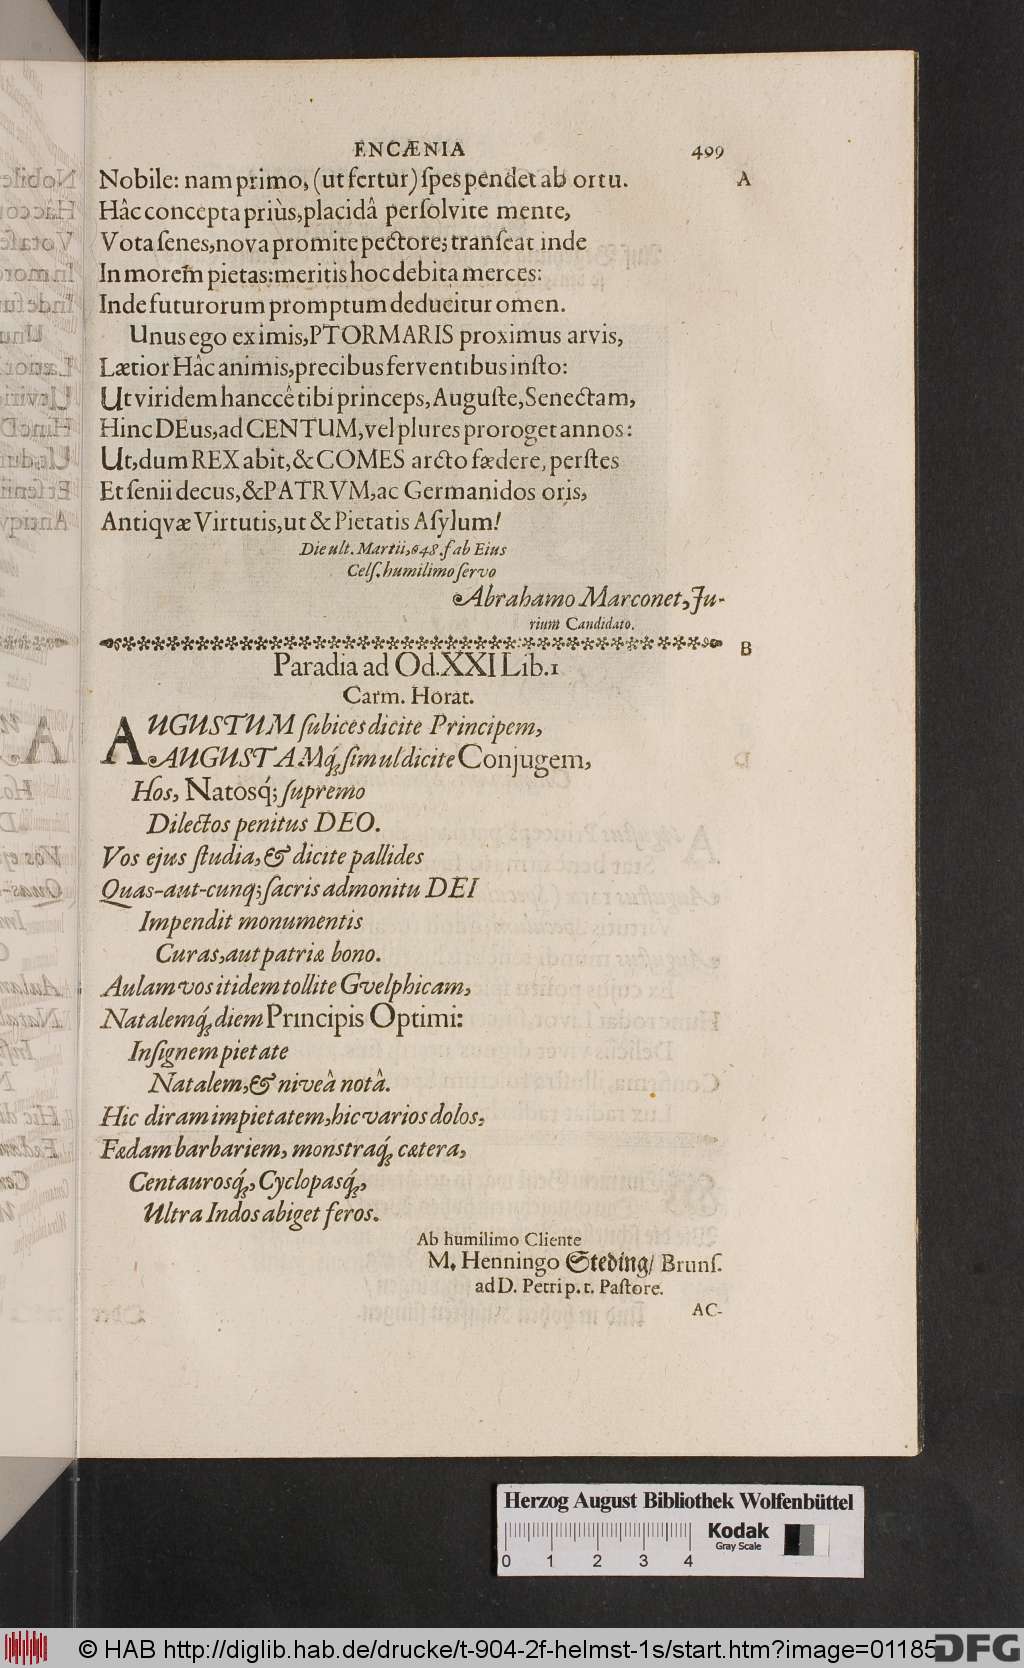 ENCÆNIA 499
Nobile: nam primo, (ut fertur) ſpes pendet ab ortu. A
Hâc concepta priùs, placidâ perſolvite mente,
Vota ſenes, nova promite pectore; tranſeat inde
In morem pietas: meritis hoc debita merces:
Inde futurorum promptum deducitur omen.
Unus ego ex imis, PTORMARIS proximus arvis,
Lætior Hâc animis, precibus ferventibus inſto:
Ut viridem hanccê tibi princeps, Auguſte, Senectam,
Hinc DEus, ad CENTUM, vel plures proroget annos:
Ut, dum REX abit, & COMES arcto fædere, perſtes
Et ſenii decus, & PATRVM, ac Germanidos oris,
Antiqvæ Virtutis, ut & Pietatis Aſylum!
Die ult. Martii, 648. ſ ab Eius
Celſ. humilimo ſervo
Abrahamo Marconet, Ju-
rium Candidato.
B
Paradia ad Od. XXI Lib. 1
Carm. Horat.
AUGUSTUM ſubices dicite Principem,
AUGUSTAMq́; ſimul dicite Conjugem,
Hos, Natosq́; ſupremo
Dilectos penitus DEO.
Vos ejus ſtudia, & dicite pallides
Quas-aut-cunq; ſacris admonitu DEI
Impendit monumentis
Curas, aut patriæ bono.
Aulam vos itidem tollite Gvelphicam,
Natalemq́; diem Principis Optimi:
Inſignem pietate
Natalem, & niveâ notâ.
Hic diram impietatem, hic varios dolos,
Fædam barbariem, monstraq́; cætera,
Centaurosq́;, Cyclopasq́;,
Ultra Indos abiget feros.
Ab humilimo Cliente
M. Henningo Steding/ Brunſ.
ad D. Petri p. t. Paſtore.
AC-
Herzog August Bibliothek Wolfenbüttel
0 1 2 3 4
Kodak
Gray Scale
© HAB http://diglib.hab.de/drucke/t-904-2f-helmst-1s/start.htm?image=01185
DFG